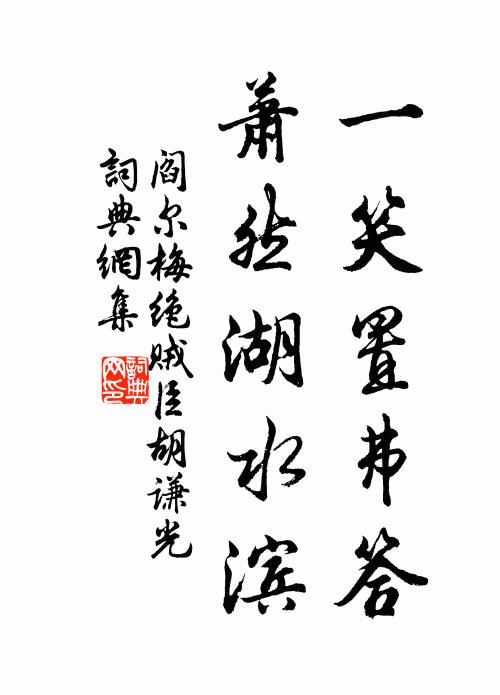 一笑置弗答
蕭然湖水滨
阎尔梅绝贼臣胡谦光
詞典網集
詞典网印